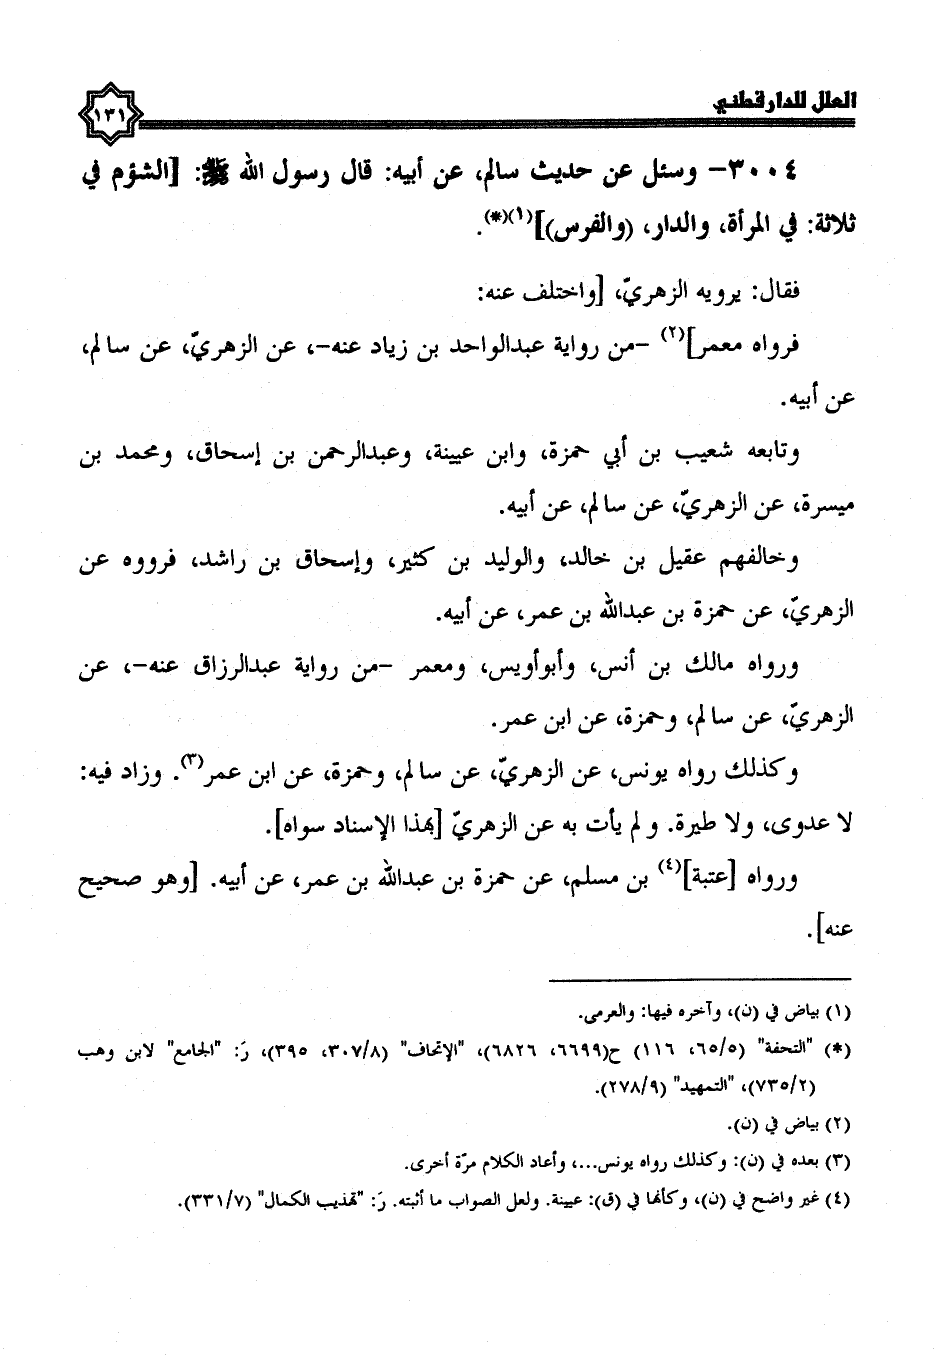 العلل للدارقطني
١٣١
٣٠٠٤– وسئل عن حديث سالم، عن أبيه: قال رسول الله ﷺ: [الشؤم في
ثلاثة: في المرأة، والدار، (والفرس)](١)(*).
فقال: يرويه الزهريّ، [واختلف عنه:
فرواه معمر](٢) –من رواية عبدالواحد بن زياد عنه–، عن الزهريّ، عن سالم،
عن أبيه.
وتابعه شعيب بن أبي حمزة، وابن عيينة، وعبدالرحمن بن إسحاق، ومحمد بن
ميسرة، عن الزهريّ، عن سالم، عن أبيه.
وخالفهم عقيل بن خالد، والوليد بن كثير، وإسحاق بن راشد، فرووه عن
الزهريّ، عن حمزة بن عبدالله بن عمر، عن أبيه.
ورواه مالك بن أنس، وأبوأويس، ومعمر –من رواية عبدالرزاق عنه–، عن
الزهريّ، عن سالم، وحمزة، عن ابن عمر.
وكذلك رواه يونس، عن الزهريّ، عن سالم، وحمزة، عن ابن عمر(٣). وزاد فيه:
لا عدوى، ولا طيرة. ولم يأت به عن الزهريّ [بهذا الإسناد سواه].
ورواه [عتبة](٤) بن مسلم، عن حمزة بن عبدالله بن عمر، عن أبيه. [وهو صحيح
عنه].
(١) بياض في (ن)، وآخره فيها: والعرمى.
(*) "التحفة" (٦٥/٥، ١١٦) ح(٦٦٩٩، ٦٨٢٦)، "الإتحاف" (٣٠٧/٨، ٣٩٥)، رَ: "الجامع" لابن وهب
(٧٣٥/٢)، "التمهيد" (٢٧٨/٩).
(٢) بياض في (ن).
(٣) بعده في (ن): وكذلك رواه يونس...، وأعاد الكلام مرّة أخرى.
(٤) غير واضح في (ن)، وكأنها في (ق): عيينة. ولعل الصواب ما أثبته. رَ: "تهذيب الكمال" (٣٣١/٧).